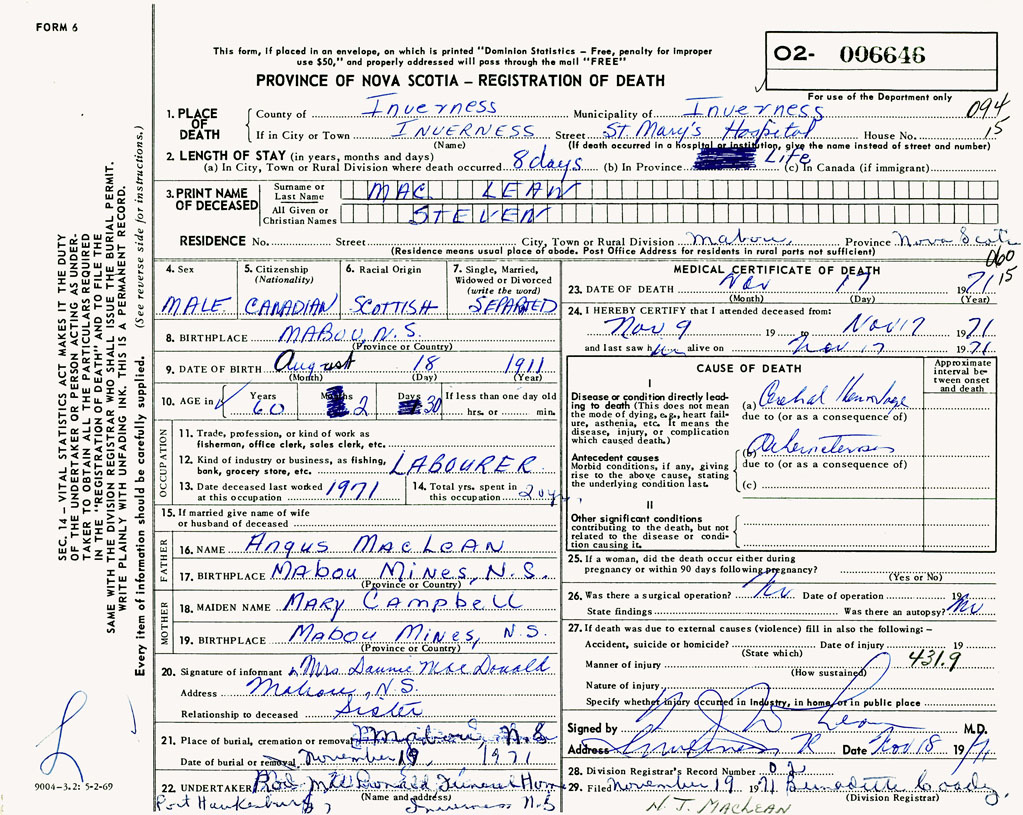 FORM 6
This form, if placed in an envelope, on which is printed "Dominion Statistics – Free, penalty for improper
use $50," and properly addressed will pass through the mail "FREE"
O2- 006646
PROVINCE OF NOVA SCOTIA – REGISTRATION OF DEATH
For use of the Department only
094
15
1. PLACE OF DEATH
County of Inverness Municipality of Inverness
If in City or Town INVERNESS Street St Mary's Hospital House No.
(Name) (If death occurred in a Hospital or institution, give the name instead of street and number)
2. LENGTH OF STAY (in years, months and days)
(a) In City, Town or Rural Division where death occurred 8 days (b) In Province Life (c) In Canada (if immigrant)
3. PRINT NAME OF DECEASED
Surname or Last Name MAC LEAN
All Given or Christian Names STEVEN
RESIDENCE No. Street City, Town or Rural Division Mabou, Province Nova Scoti
(Residence means usual place of abode. Post Office Address for residents in rural ports not sufficient)
060
15
4. Sex MALE
5. Citizenship (Nationality) CANADIAN
6. Racial Origin SCOTTISH
7. Single, Married, Widowed or Divorced (write the word) SEPARATED
8. BIRTHPLACE MABOU, N.S.
(Province or Country)
9. DATE OF BIRTH August 18 1911
(Month) (Day) (Year)
10. AGE in Years 60 Months 2 Days 30 If less than one day old
hrs. or min.
OCCUPATION
11. Trade, profession, or kind of work as
fisherman, office clerk, sales clerk, etc.
12. Kind of industry or business, as fishing,
bank, grocery store, etc. LABOURER
13. Date deceased last worked at this occupation 1971
14. Total yrs. spent in this occupation
15. If married give name of wife
or husband of deceased
FATHER
16. NAME Angus MacLean
17. BIRTHPLACE Mabou Mines, N.S.
(Province or Country)
MOTHER
18. MAIDEN NAME Mary Campbell
19. BIRTHPLACE Mabou Mines, N.S.
(Province or Country)
20. Signature of informant Mrs MacDonald
Address Mabou, N.S.
Relationship to deceased Sister
21. Place of burial, cremation or removal Mabou, N.S
Date of burial or removal November 19, 1971
22. UNDERTAKER Rod. MacDonald Funeral Home
(Name and address)
Port Hawkesbury, Inverness N-S
MEDICAL CERTIFICATE OF DEATH
23. DATE OF DEATH Nov 17 1971
(Month) (Day) (Year)
24. I HEREBY CERTIFY that I attended deceased from:
Nov 9 19 to Nov 17 1971
and last saw him alive on Nov 17 1971
CAUSE OF DEATH
Approximate interval between onset and death
I
Disease or condition directly leading to death (This does not mean the mode of dying, e.g., heart failure, asthenia, etc. It means the disease, injury, or complication which caused death.)
(a) Cerebral Hemorrhage
due to (or as a consequence of)
Antecedent causes
Morbid conditions, if any, giving rise to the above cause, stating the underlying condition last.
(b)
due to (or as a consequence of)
(c)
II
Other significant conditions
contributing to the death, but not related to the disease or condition causing it.
25. If a woman, did the death occur either during
pregnancy or within 90 days following pregnancy?
(Yes or No)
26. Was there a surgical operation? No Date of operation 19
State findings Was there an autopsy? No
27. If death was due to external causes (violence) fill in also the following: –
Accident, suicide or homicide? Date of injury 19
(State which)
431.9
Manner of injury
(How sustained)
Nature of injury
Specify whether injury occurred in Industry, in home, or in public place
Signed by M.D.
Address Inverness Date Nov 18 1971
28. Division Registrar's Record Number 02
29. Filed November 19 1971 Bernadette Coady.
(Division Registrar)
N. J. MACLEAN
SEC. 14 – VITAL STATISTICS ACT MAKES IT THE DUTY
OF THE UNDERTAKER OR PERSON ACTING AS UNDER-
TAKER TO OBTAIN ALL THE PARTICULARS REQUIRED
IN THE "REGISTRATION OF DEATH" AND TO FILE THE
SAME WITH THE DIVISION REGISTRAR WHO SHALL ISSUE THE BURIAL PERMIT.
WRITE PLAINLY WITH UNFADING INK. THIS IS A PERMANENT RECORD.
Every item of information should be carefully supplied. (See reverse side for instructions.)
9004-3.2: 5-2-69